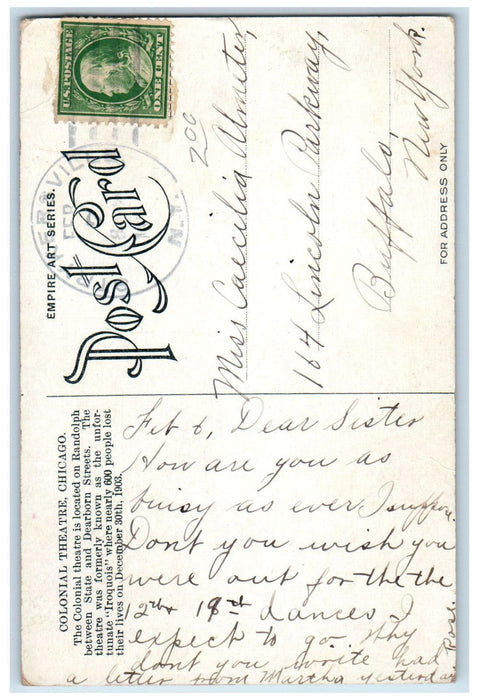 U.S. POSTAGE
ONE CENT
EMPIRE ART SERIES.
Post Card
N.Y.
FEB
200
Miss Caecilia Almeter,
164 Lincoln Parkway,
Buffalo,
New York.
FOR ADDRESS ONLY
COLONIAL THEATRE, CHICAGO.
The Colonial theatre is located on Randolph
between State and Dearborn Streets. The
theatre was formerly known as the unfor-
tunate "Iroquois" where nearly 600 people lost
their lives on December 30th, 1903.
Feb 6, Dear Sister
How are you as
busy as ever I suppose.
Dont you wish you
were out for the the
12th 18th dances I
expect to go. Why
dont you write had
a letter from Martha yesterday
Rose.